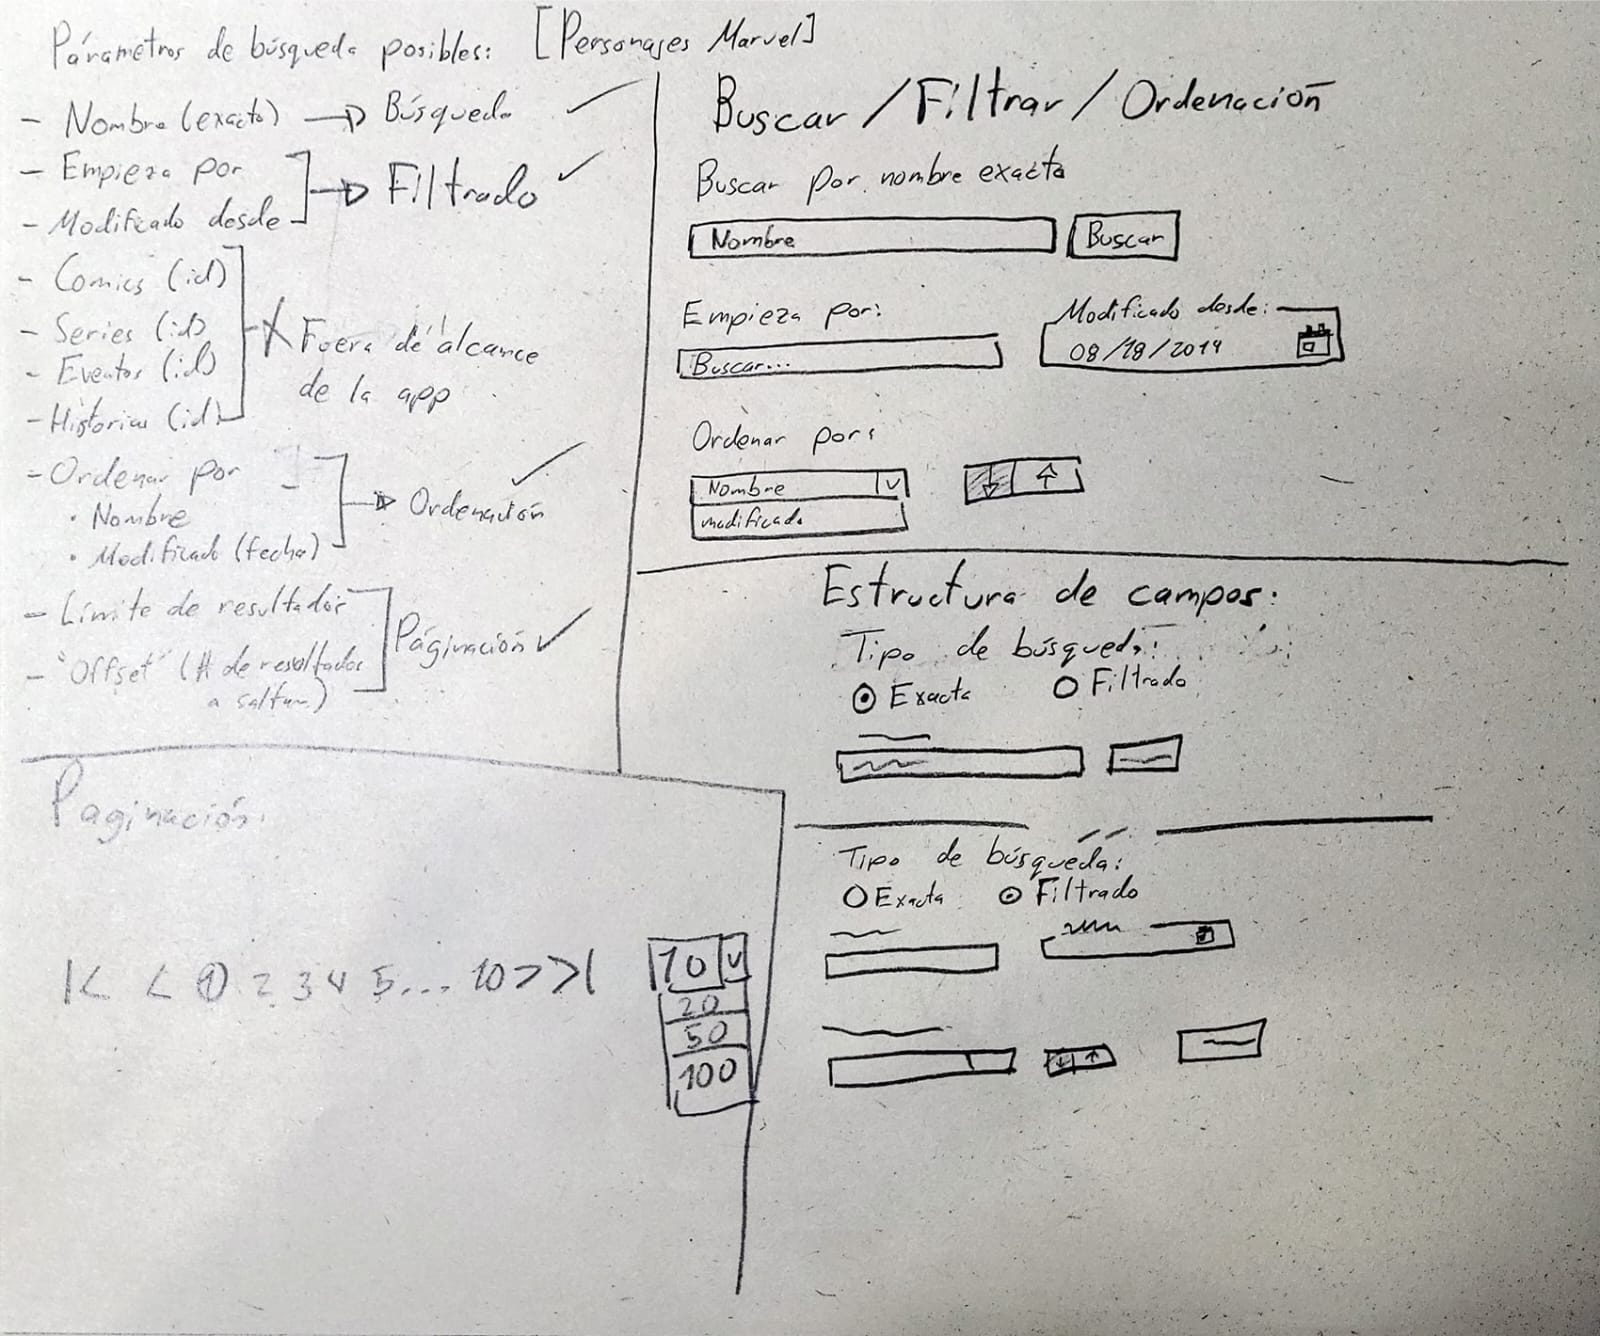 Párametros de búsqueda posibles: [Personajes Marvel]
- Nombre (exacto) → Búsqueda ✓
- Empieza por
- Modificado desde
→ Filtrado ✓
- Comics (id)
- Series (id)
- Eventos (id)
- Historias (id)
X Fuera de alcance
de la app
- Ordenar por
· Nombre
· Modificado (fecha)
→ Ordenación ✓
- Límite de resultados
- "Offset" (# de resultados
a saltar)
Páginación ✓
Buscar / Filtrar / Ordenación
Buscar por nombre exacto
Nombre
Buscar
Empieza por:
Buscar...
Modificado desde:
08/18/2019
Ordenar por:
Nombre
modificado
↓ ↑
Estructura de campos:
Tipo de búsqueda:
Exacta Filtrado
Tipo de búsqueda:
Exacta Filtrado
↓ ↑
Paginación:
|< < 1 2 3 4 5... 10 > >|
10
20
50
100